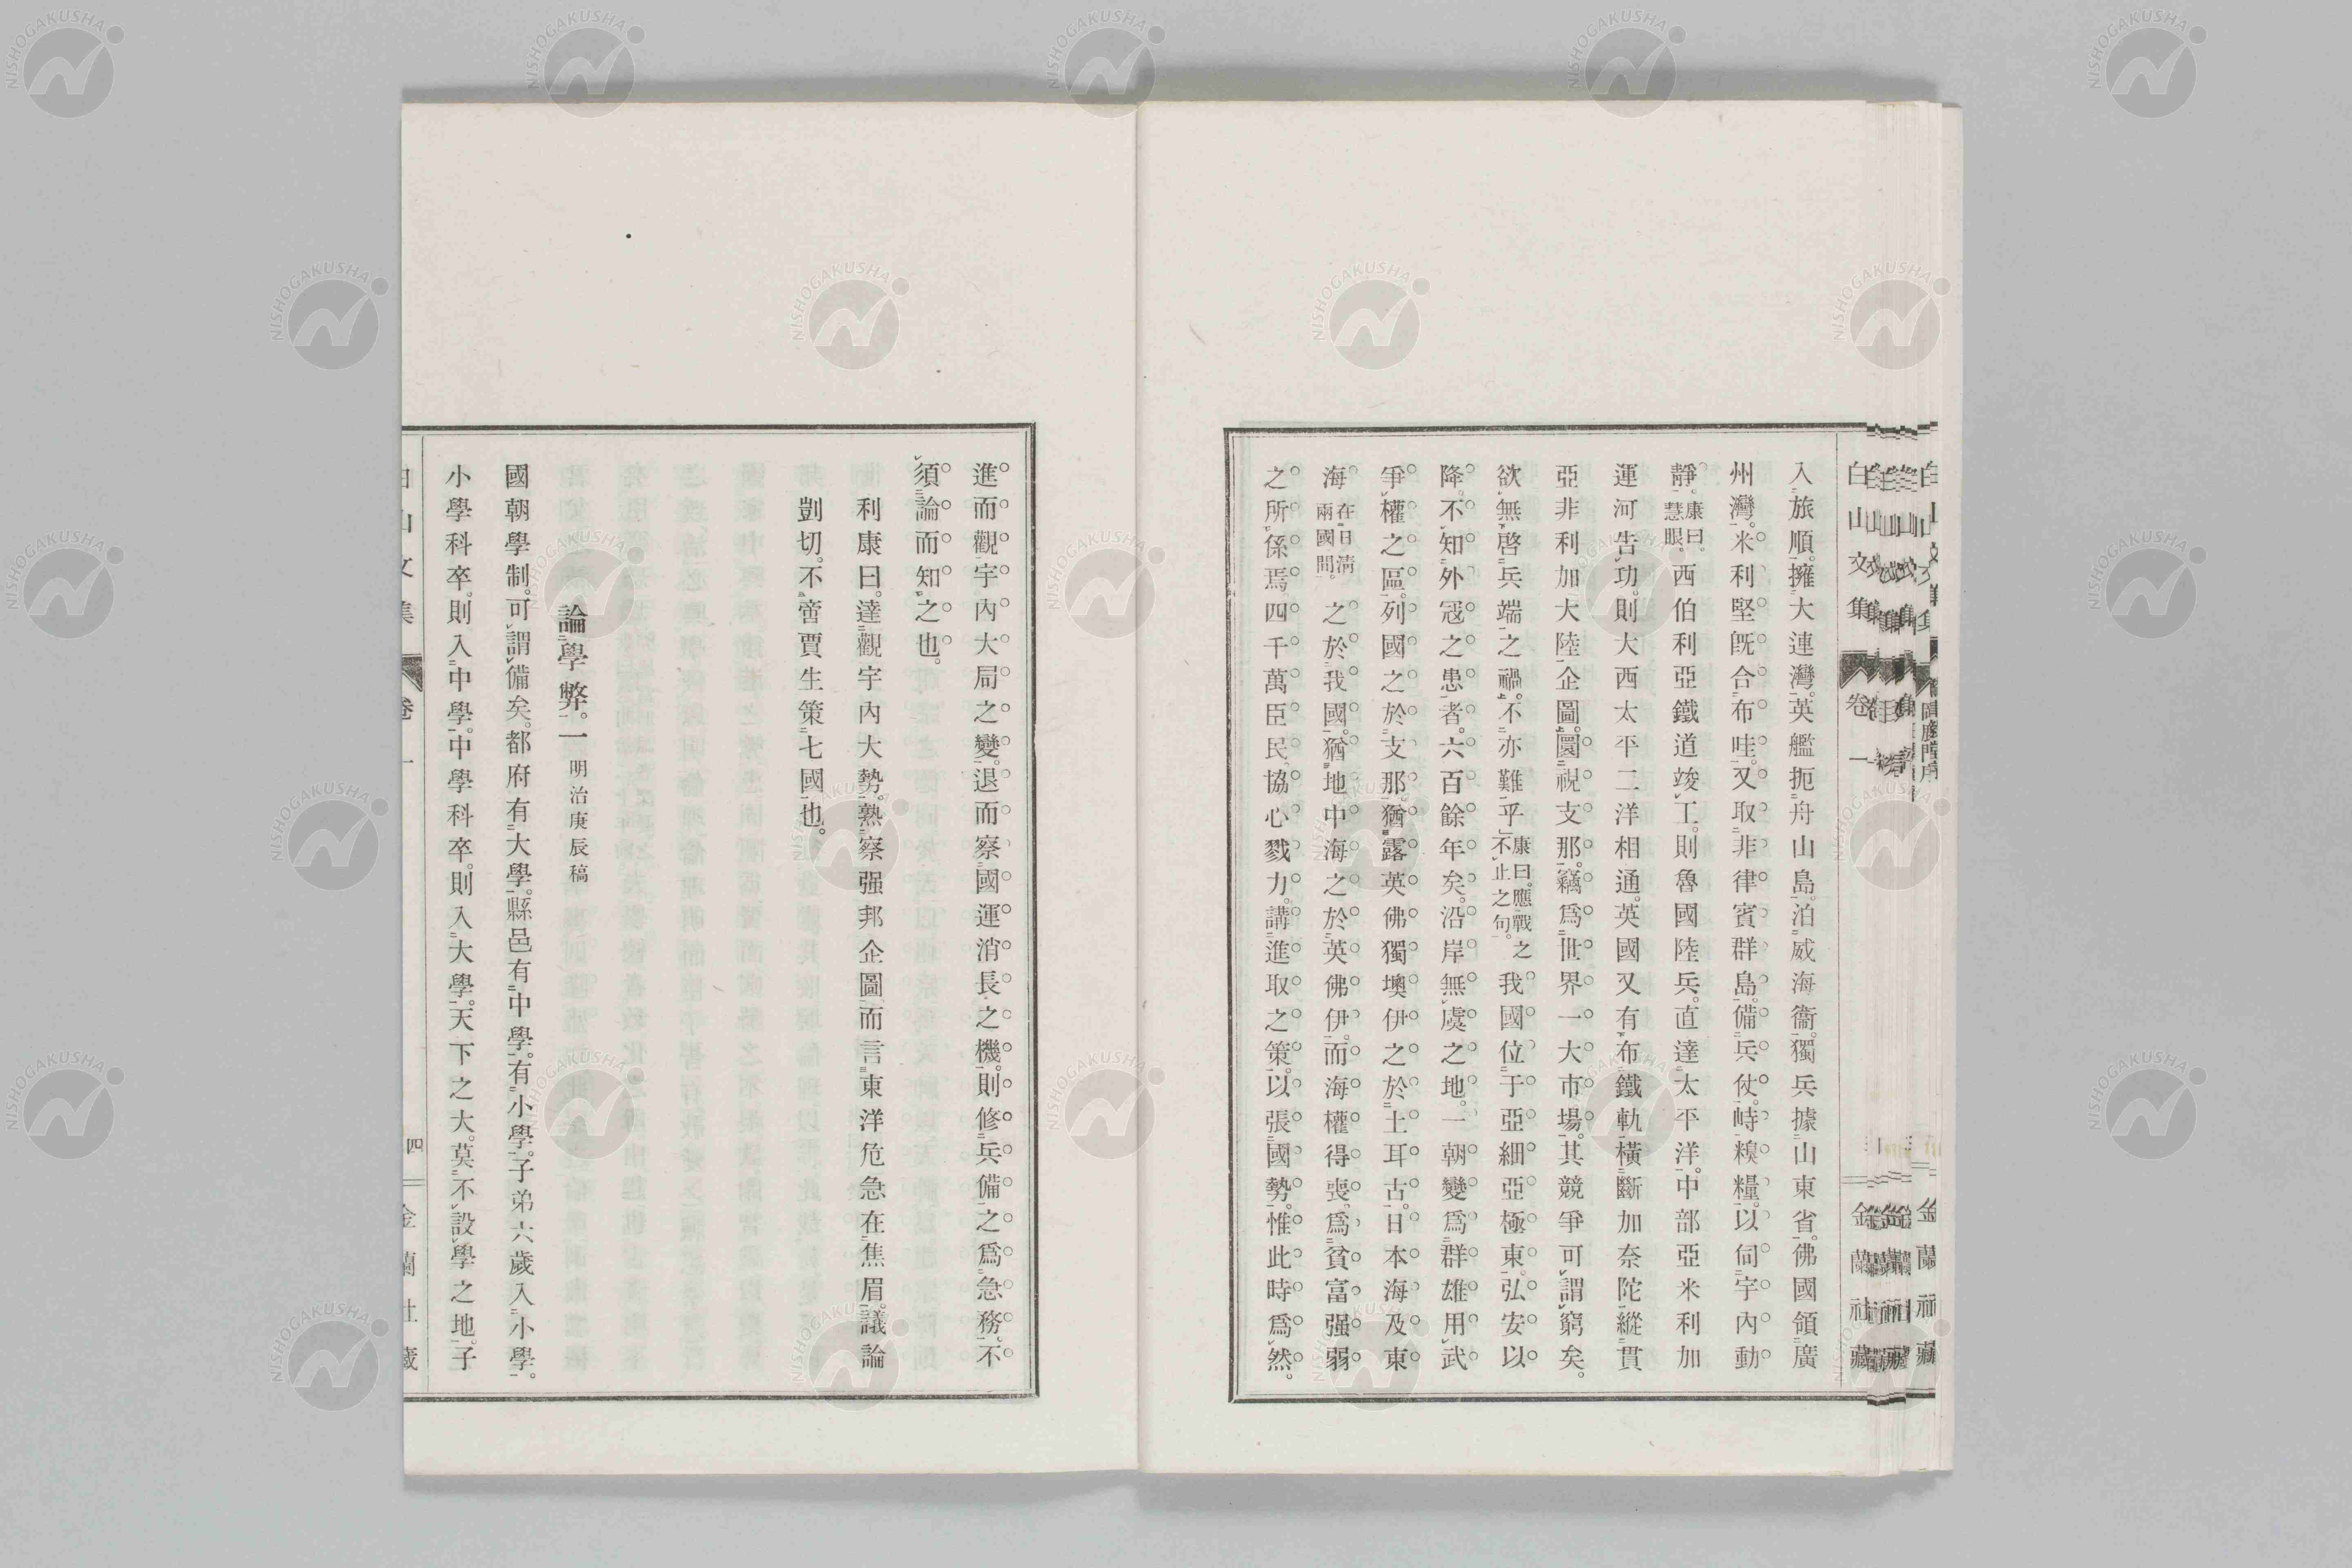 入旅順。擁大連灣。英艦扼舟山島。泊威海衞。獨兵據山東省。佛國領廣
州灣。米利堅既合布哇。又取非律賓群島。備兵仗。峙糗糧。以伺宇内動
靜。康曰。慧眼。西伯利亞鐵道竣工。則魯國陸兵。直達太平洋。中部亞米利加
運河告功。則大西太平二洋相通。英國又有布鐵軌橫斷加奈陀縱貫
亞非利加大陸企圖。圜視支那。竊爲世界一大市場。其競爭可謂窮矣。
欲無啓兵端之禍。不亦難乎。康曰。應戰之不止之句。我國位于亞細亞極東。弘安以
降。不知外冦之患者。六百餘年矣。沿岸無虞之地。一朝變爲群雄用武
爭權之區。列國之於支那。猶露英佛獨墺伊之於土耳古。日本海及東
海在日淸兩國間。之於我國。猶地中海之於英佛伊。而海權得喪。爲貧富强弱
之所係焉。四千萬臣民。協心戮力。講進取之策。以張國勢。惟此時爲然。
白山文集
卷一
金蘭社藏
進而觀宇内大局之變。退而察國運消長之機。則修兵備之爲急務。不
須論而知之也。
利康曰。達觀宇内大勢。熟察强邦企圖而言東洋危急在焦眉。議論
剴切。不啻賈生策七國也。
論學弊。一 明治庚辰稿
國朝學制。可謂備矣。都府有大學。縣邑有中學。有小學。子弟六歲入小學。
小學科卒。則入中學。中學科卒。則入大學。天下之大。莫不設學之地。子
白山文集
卷一
四
金蘭社藏
NISHOGAKUSHA